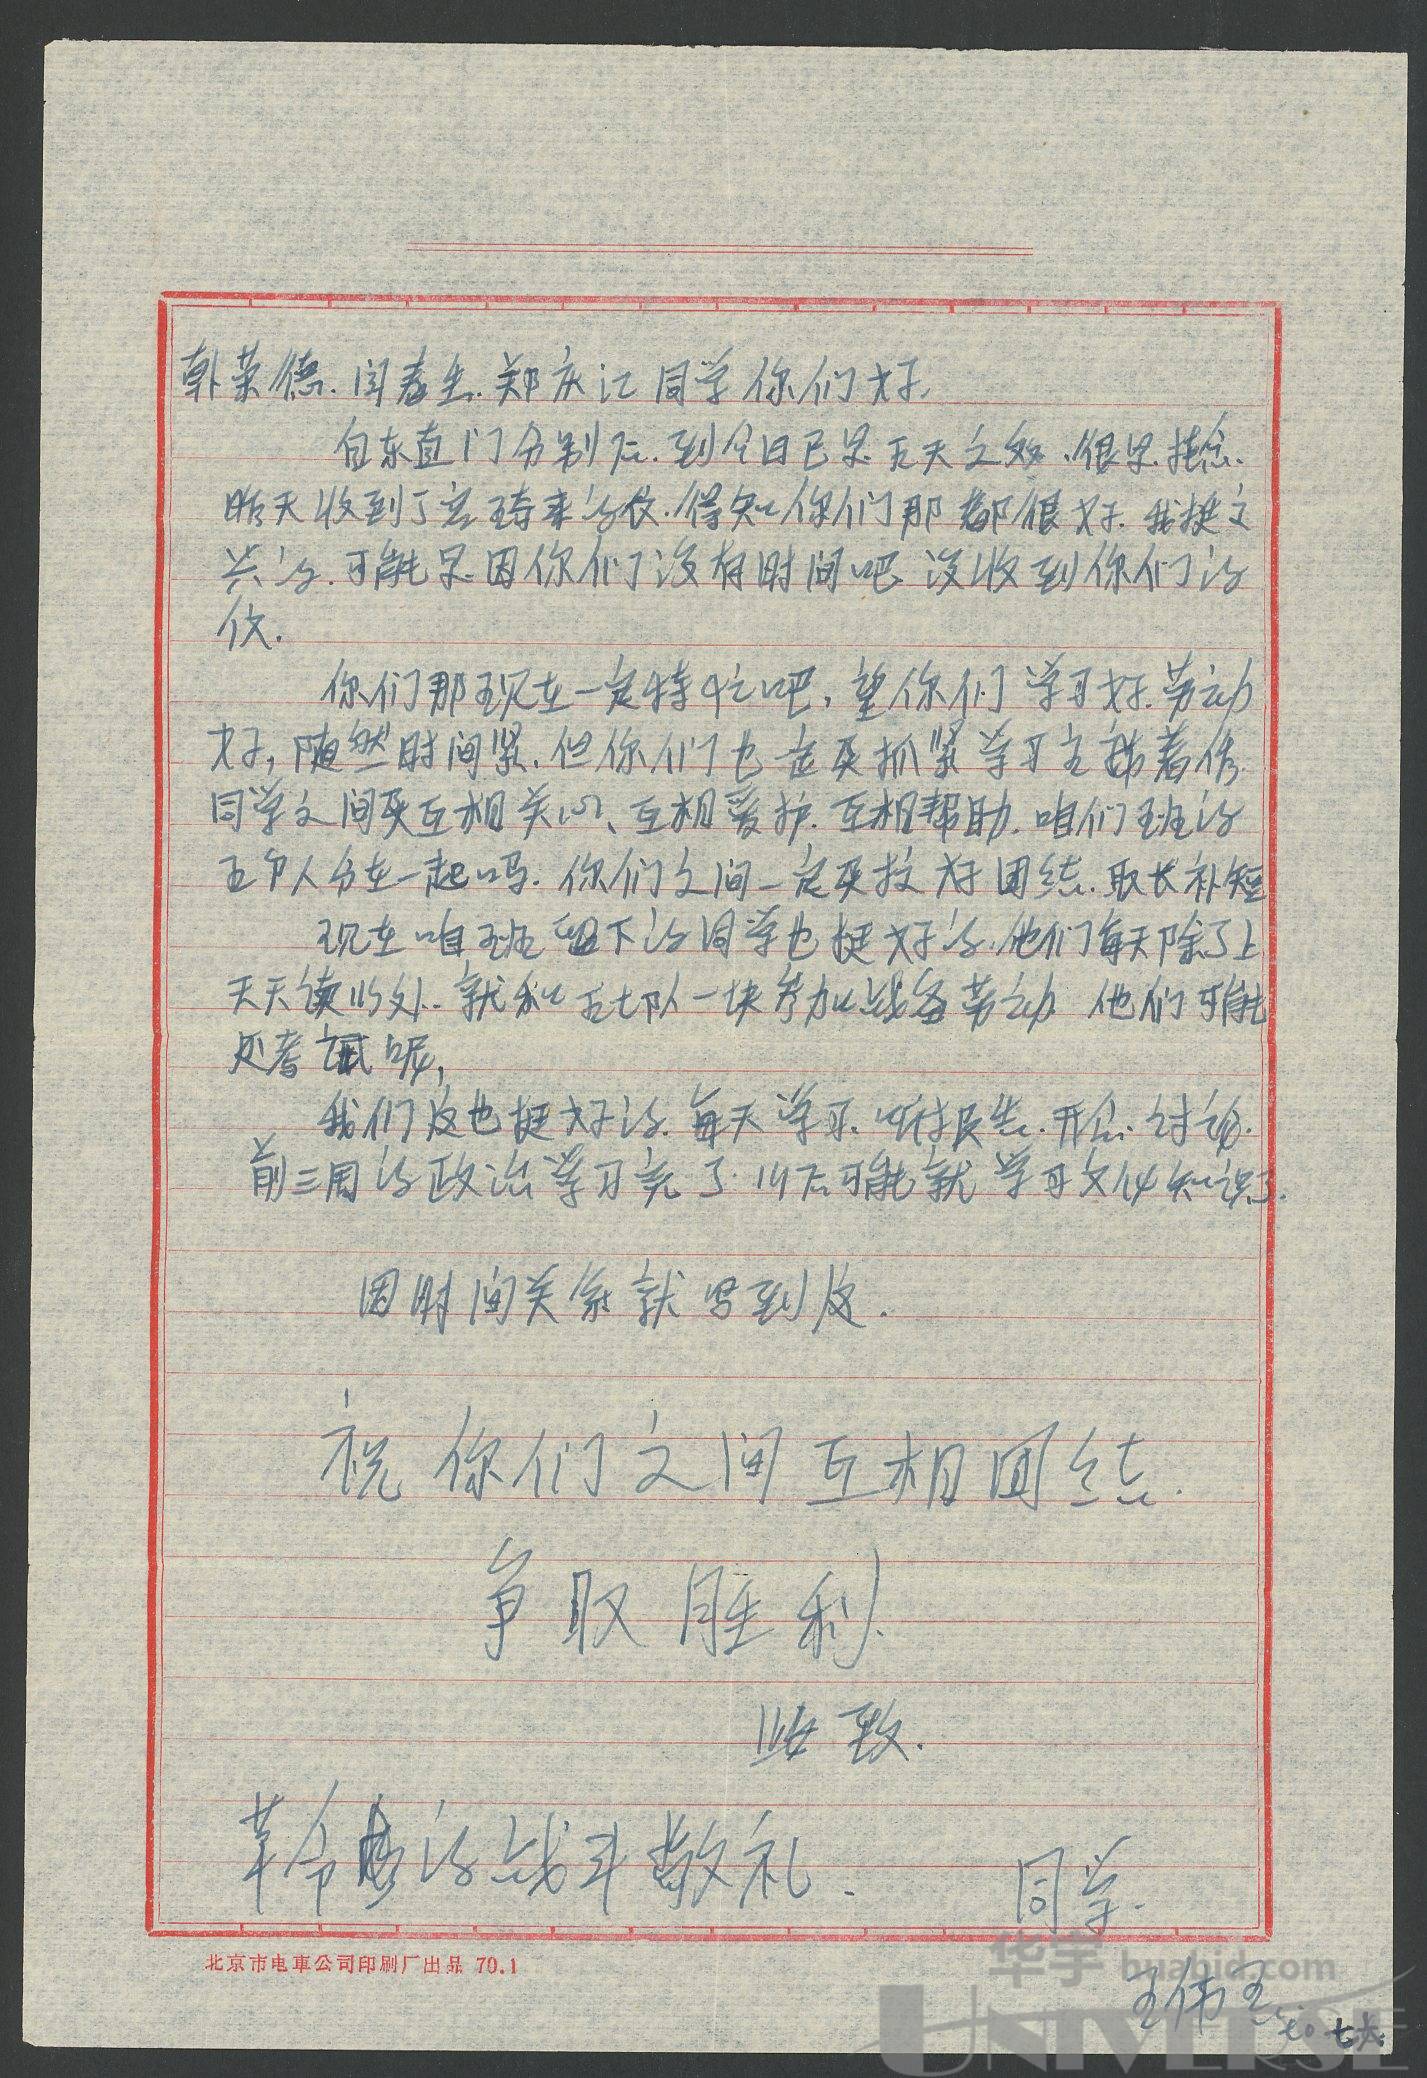 韩荣德、闫春生、郑庆江同学你们好.
自东直门分别后.到今日已是五天之久.很是挂念.
昨天收到了来的信.得知你们那都很好.我挺高
兴的.可能是因你们没有时间吧.没收到你们的
信.
你们那现在一定特忙吧,望你们学习好.劳动
好,随然时间紧.但你们也一定要抓紧学习主席著作.
同学之间要互相关心、互相爱护.互相帮助.咱们班的
五个人分在一起吗.你们之间一定要搞好团结.取长补短
现在咱班留下的同学也挺好的.他们每天除了上
天天读以外.就和五七部队一块参加战备劳动.他们可能
还考试呢,
我们这也挺好的.每天学习.听报告.开会.讨论.
前三周的政治学习完了.以后可能就学习文化知识了.
因时间关系就写到这.
祝你们之间互相团结.
争取胜利.
此致.
革命的战斗敬礼.
同学.
王伟
70 七 六
北京市电車公司印刷厂出品 70.1
华宇 huabid.com
UNIVERSE